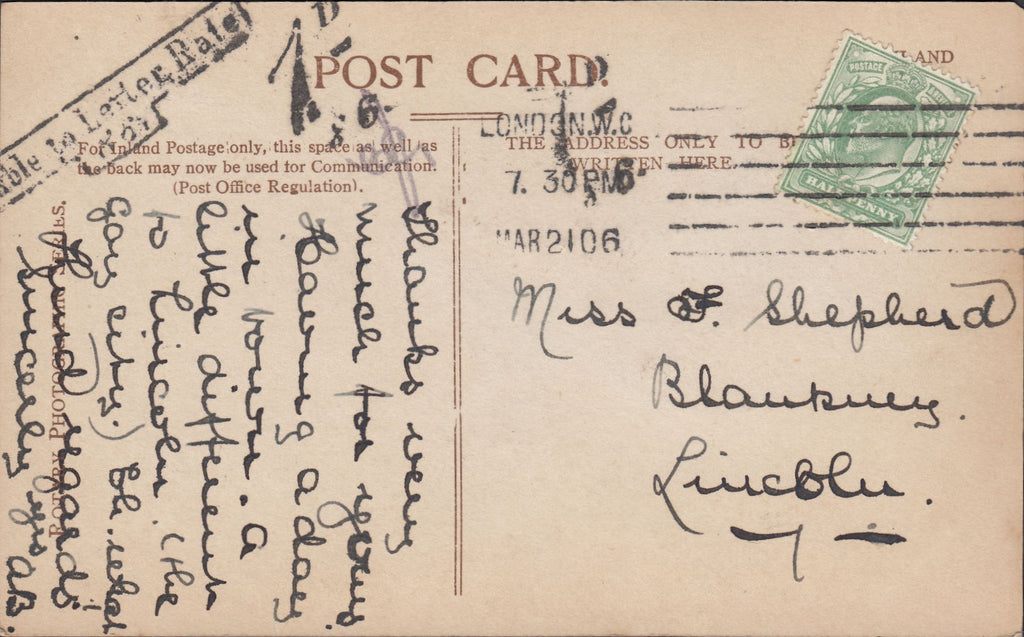 ble to Letter Rate
1D
POST CARD.
LAND
For Inland Postage only, this space as well as
the back may now be used for Communication.
(Post Office Regulation).
THE ADDRESS ONLY TO B
WRITTEN HERE.
LONDON.W.C
7. 30PM
MAR 21 06
POSTAGE
HALF PENNY
ROTARY PHOTOGRAPHIC SERIES.
Thanks very
much for yours.
Having a day
in town. A
little different
to Lincoln (the
gay city.) Eh. what
Kind regards
Sincerely yrs AB.
Miss F. Shepherd
Blankney.
Lincoln.